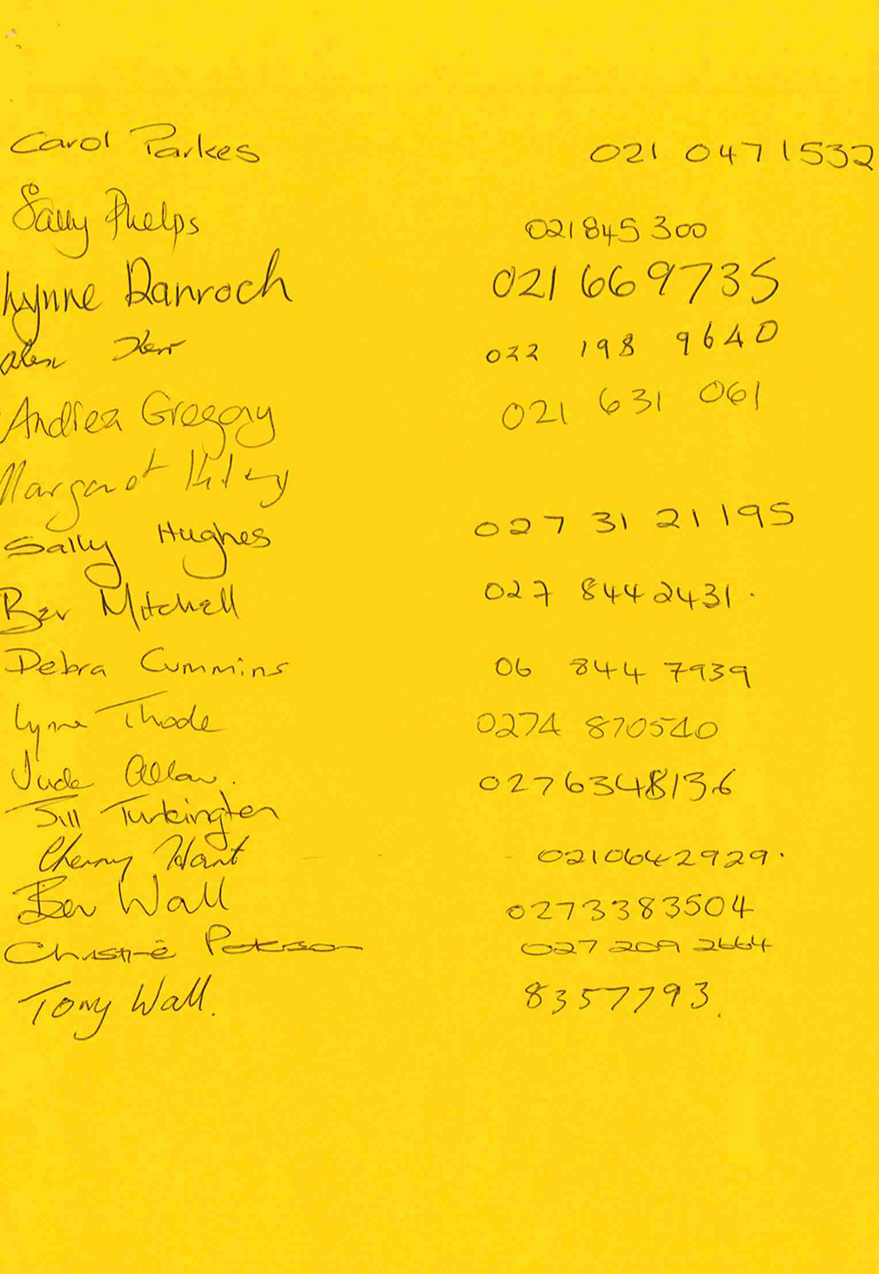 Carol Parkes 021 047 1532
Sally Phelps 021845 300
Lynne Danroch 021 669735
Alex Kerr 022 198 9640
Andrea Gregory 021 631 061
Margaret
Sally Hughes 027 31 21 195
Bev Mitchell 027 844 2431.
Debra Cummins 06 844 7939
Lynne Thode 0274 870540
Jude Allan. 0276348136
Jill Turkington
Cherry Hant 0210642929.
Bev Wall 0273383504
Christine Peterson 027 209 2664
Tony Wall. 8357793.